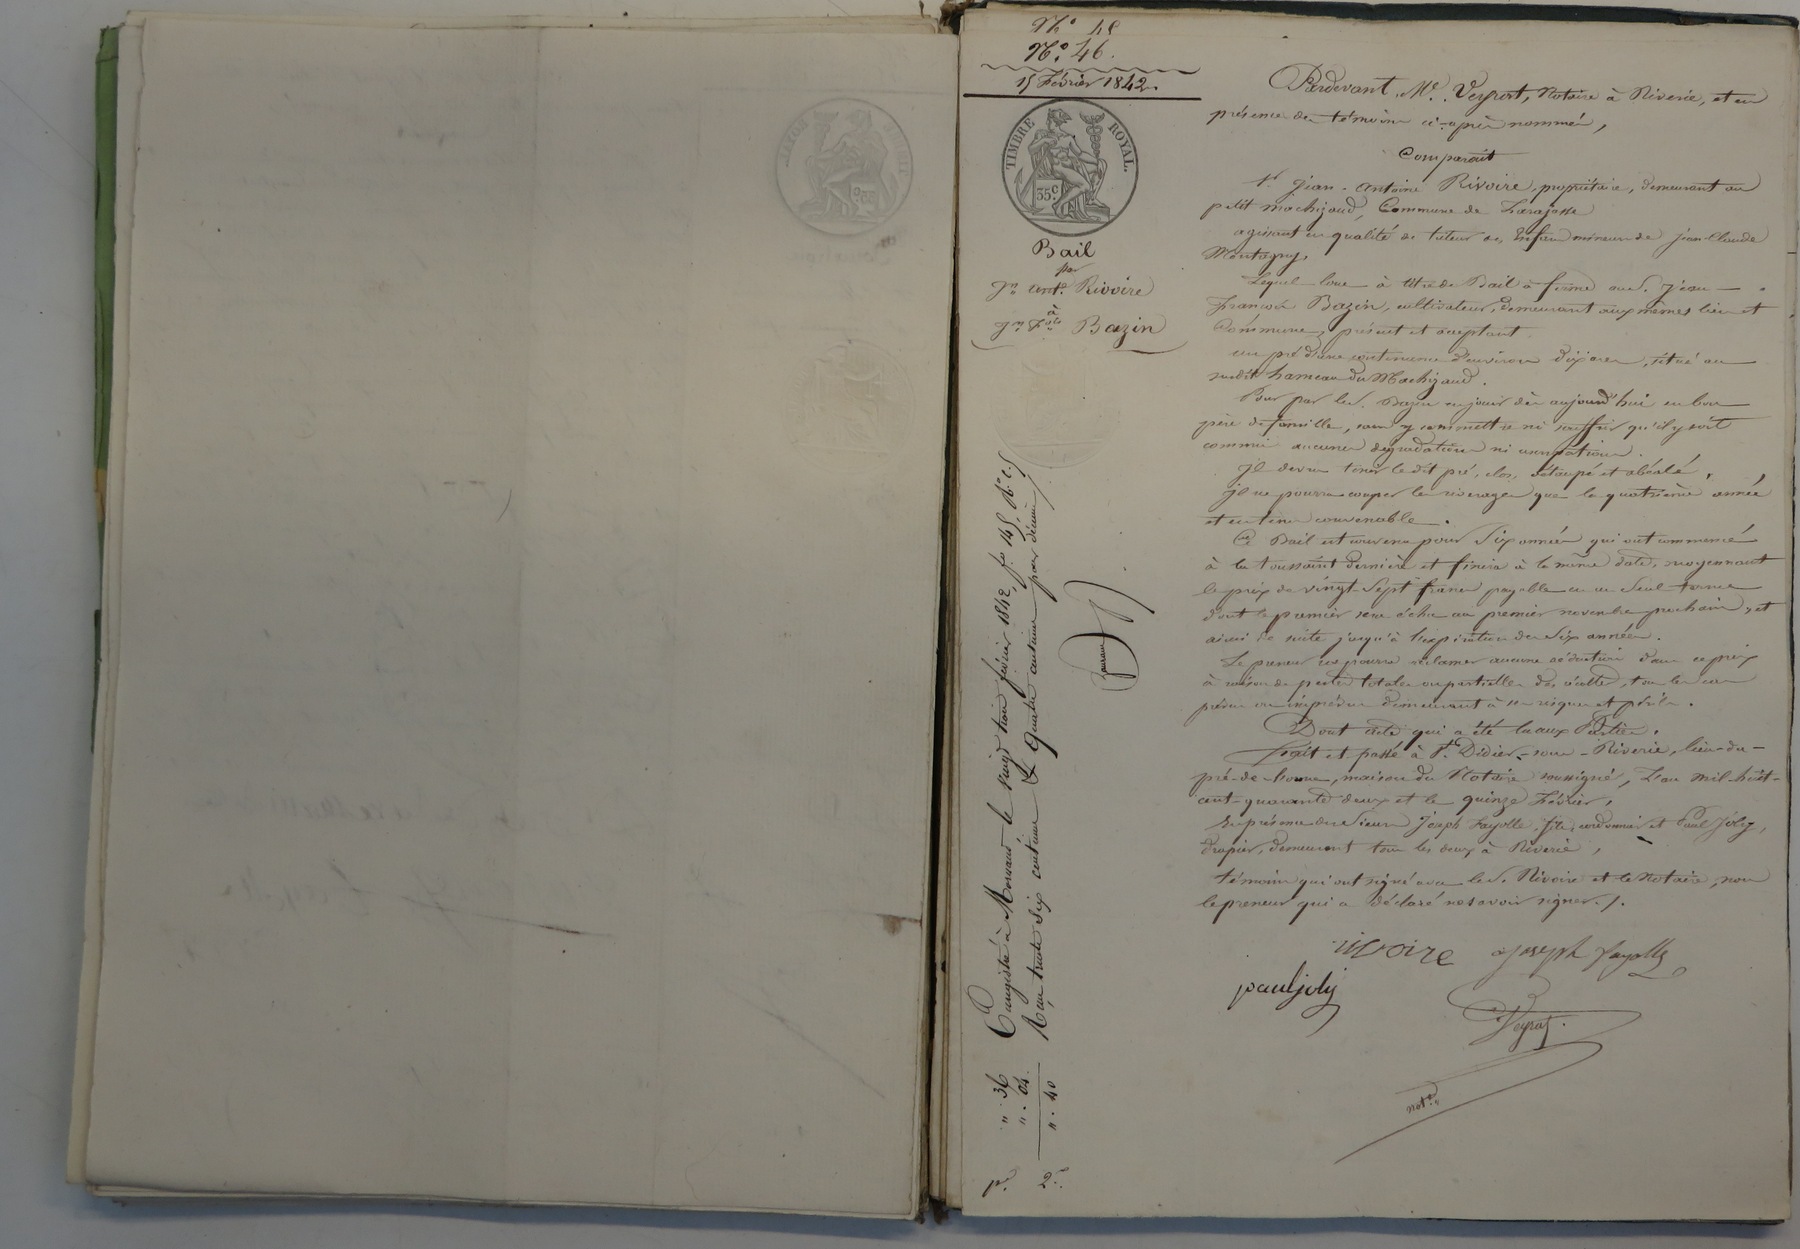 N.° 45
N.° 46.
15 Février 1842.
TIMBRE ROYAL.
35.c
Bail
par
Jn ant. Rivoire
à
Jn Fois Bazin
Pardevant Me. Veyrat, Notaire à Riverie, et en
présence des témoins ci-après nommés,
Comparait
Sr Jean-Antoine Rivoire, propriétaire, demeurant au
petit Machizaud, Commune de Larajasse
agissant en qualité de tuteur des Enfans mineurs de Jean Claude
Montagny,
Lequel loue à titre de Bail à ferme au S. Jean-
François Bazin, cultivateur, demeurant aux mêmes lieu et
Commune, présent et acceptant
un pré d'une contenance d'environ dix ares, situé au
susdit hameau du Machizaud.
Pour par le S. Bazin en jouir dès aujourd'hui en bon
père de famille, sans y commettre ni souffrir qu'il y soit
commis aucunes dégradations ni usurpations.
Il devra tenir le dit pré, clos, étaupé et abéalé,
Il ne pourra couper les riverages que la quatrième année
et en tems convenable.
Ce Bail est convenu pour Six années qui ont commencé
à la toussaint dernière et finira à la même date, moyennant
le prix de vingt-Sept francs payable en un Seul terme
dont le premier sera échu au premier novembre prochain, et
ainsi de suite jusqu'à l'expiration des Six années.
Le preneur ne pourra réclamer aucune réduction dans ce prix
à raison de perte totale ou partielle des récoltes, tous les cas
prévus ou imprévus demeurant à ses risques et périls.
Dont acte qui a été lu aux Parties.
Fait et passé à St. Didier-sous-Riverie, lieu-du-
pré-de-, maison du Notaire soussigné, L'an mil-huit-
cent-quarante deux et le quinze Février,
En présence des Sieurs Joseph Fayolle, fils, cordonnier et Paul Joly,
drapier, demeurant tous les deux à Riverie,
témoins qui ont signé avec le S. Rivoire et le Notaire, non
le preneur qui a déclaré ne savoir signer./.
rivoire joseph fayolle
paul joly
Veyrat.
not.e
Enregistré à Mornant le vingt trois février 1842, fo 145, Ro c. 5
Reçu trente six centimes & quatre centimes pour décime
" 36
" . 04.
" . 40
pr. 2.